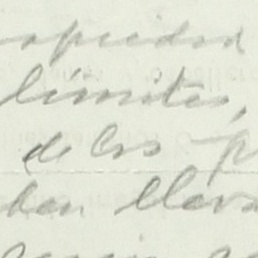 opiedad
límites,
de los p
ban lleva